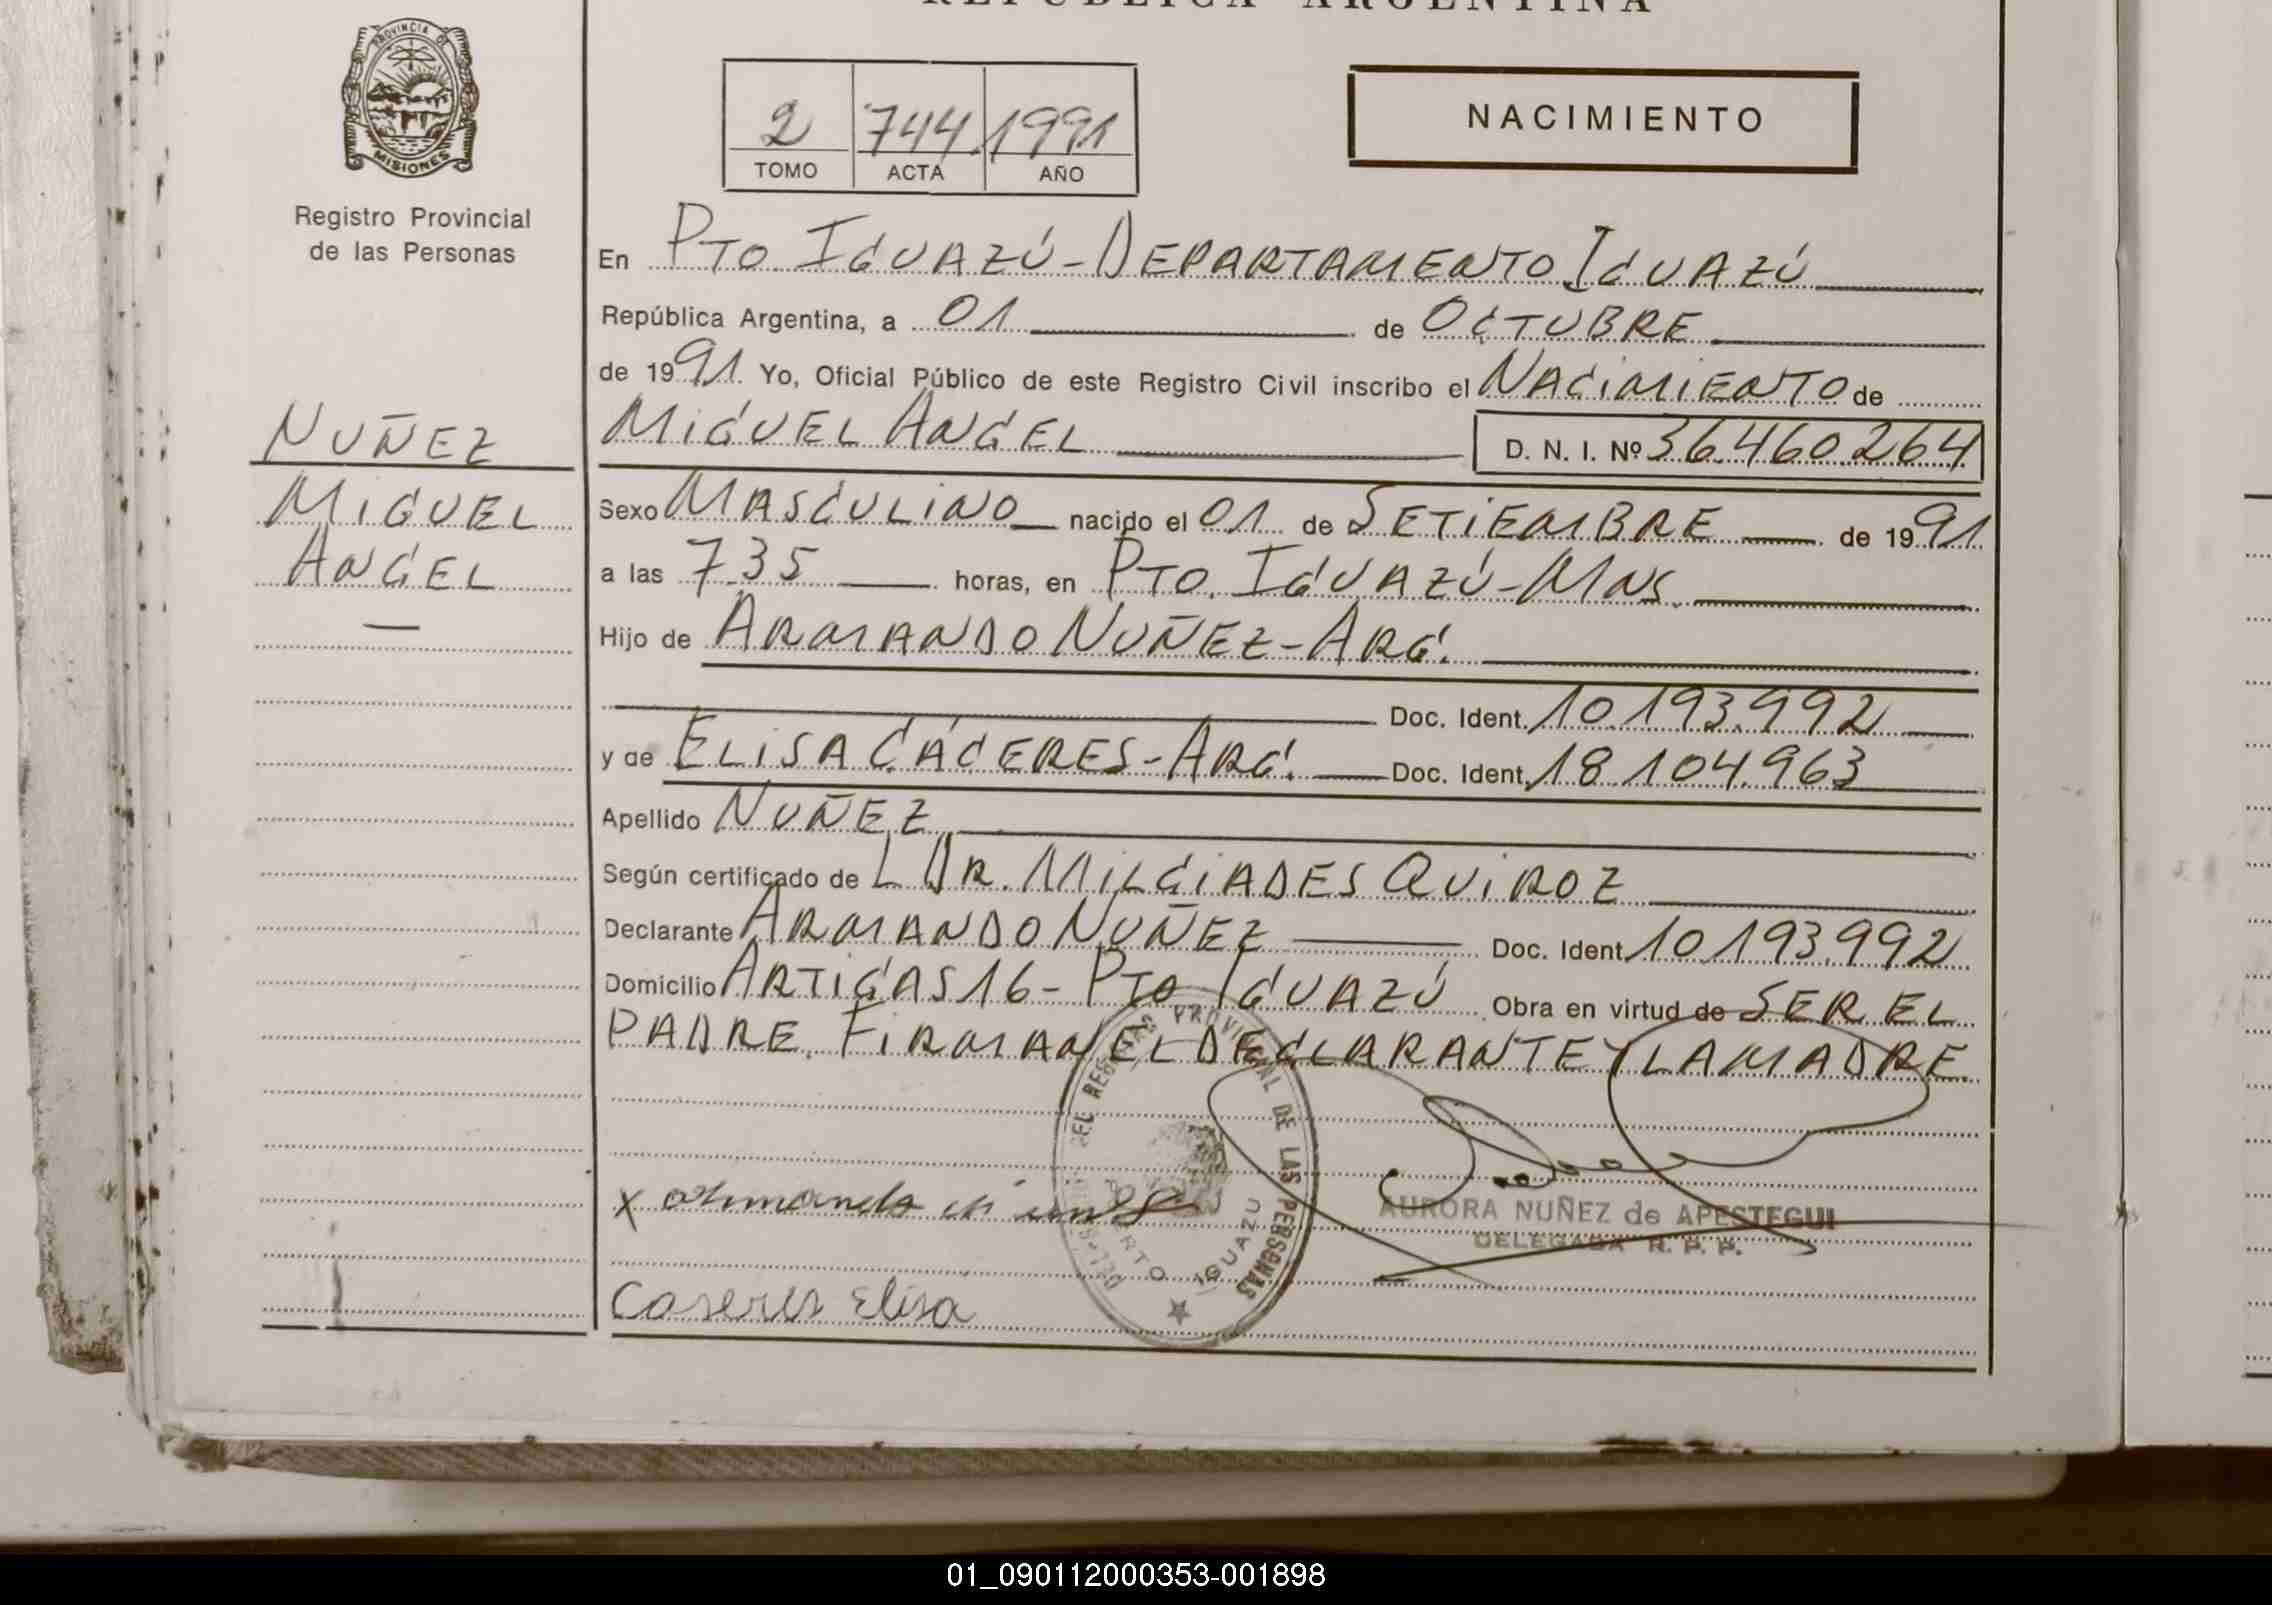 REPUBLICA ARGENTINA
PROVINCIA DE
MISIONES
Registro Provincial
de las Personas
2 744 1991
TOMO ACTA AÑO
NACIMIENTO
En PTO IGUAZÚ - DEPARTAMENTO IGUAZÚ
República Argentina, a 01 de OCTUBRE
de 1991 Yo, Oficial Público de este Registro Civil inscribo el NACIMIENTO de
MIGUEL ANGEL D. N. I. Nº 36.460.264
NUÑEZ
MIGUEL
ANGEL
—
Sexo MASCULINO nacido el 01 de SETIEMBRE de 1991
a las 7.35 horas, en PTO. IGUAZÚ - MNS.
Hijo de ARMANDO NUÑEZ - ARG.
Doc. Ident. 10.193.992
y de ELISA CÁCERES - ARG. Doc. Ident. 18.104.963
Apellido NUÑEZ
Según certificado de L DR. MILCIADES QUIROZ
Declarante ARMANDO NUÑEZ Doc. Ident. 10.193.992
Domicilio ARTIGAS 16 - PTO IGUAZÚ Obra en virtud de SER EL
PADRE. FIRMAN EL DECLARANTE Y LA MADRE.
DEL REGISTRO PROVINCIAL DE LAS PERSONAS
PUERTO IGUAZU
X armando
AURORA NUÑEZ de APESTEGUI
DELEGADA R. P. P.
Caseres Elisa
01_090112000353-001898